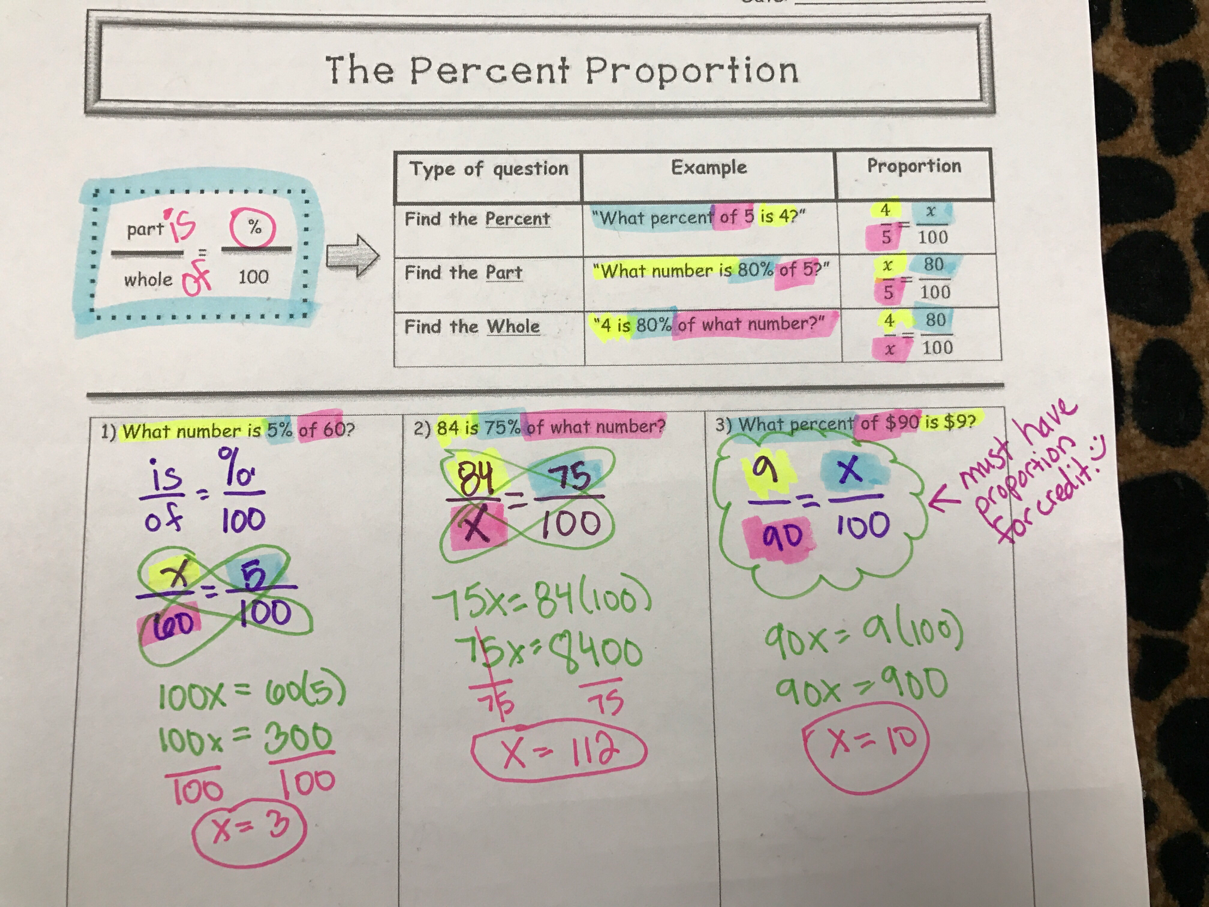 The Percent Proportion
part is = %
whole of 100
Type of question Example Proportion
Find the Percent "What percent of 5 is 4?" 4/5 = x/100
Find the Part "What number is 80% of 5?" x/5 = 80/100
Find the Whole "4 is 80% of what number?" 4/x = 80/100
1) What number is 5% of 60?
is = %
of 100
x = 5
60 100
100x = 60(5)
100x = 300
100 100
x = 3
2) 84 is 75% of what number?
84 = 75
x 100
75x = 84(100)
75x = 8400
75 75
x = 112
3) What percent of $90 is $9?
9 = x
90 100
← must have
proportion
for credit.
90x = 9(100)
90x = 900
x = 10